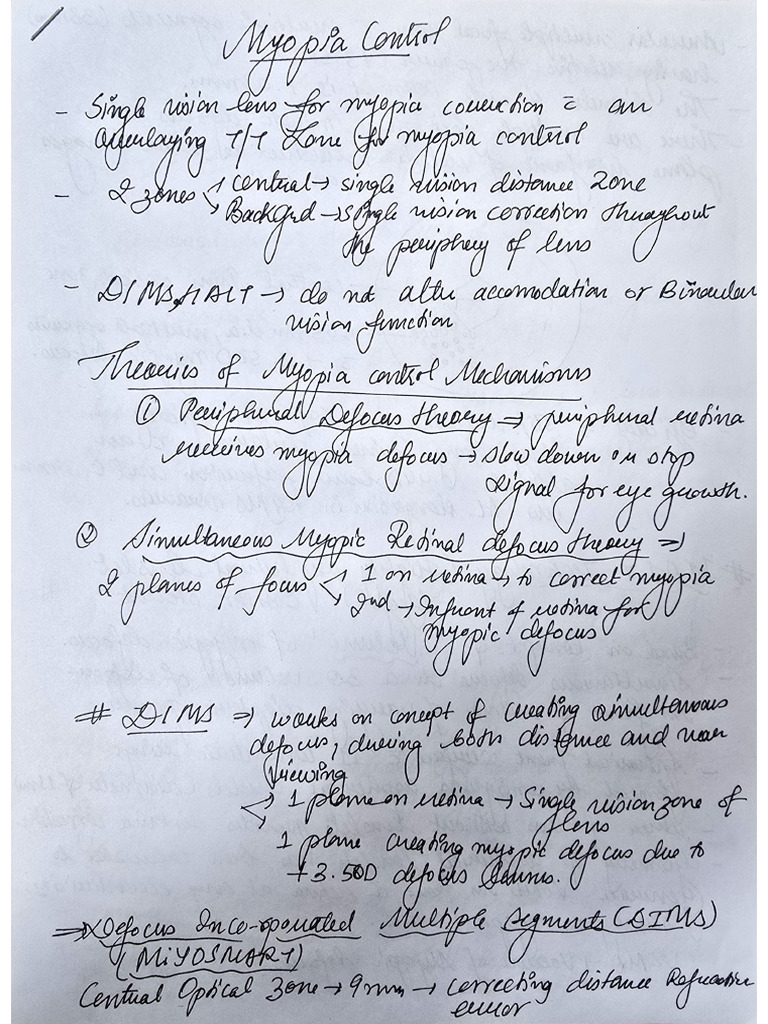 Myopia Control
- Single vision lens for myopia correction c̄ an
overlaying T/T Zone for myopia control
- 2 zones < central → single vision distance zone
Backgrd → single vision correction throughout
the periphery of lens
- DIMS, HALT → do not alter accomodation or Binocular
vision function
Theories of Myopia control Mechanisms
① Peripheral Defocus theory → peripheral retina
receives myopia defocus → slow down or stop
signal for eye growth.
② Simultaneous Myopic Retinal defocus theory ⇒
2 planes of focus < 1 on retina → to correct myopia
2nd → Infront of retina for
myopic defocus
# DIMS ⇒ works on concept of creating simultaneous
defocus, during both distance and near
viewing
< 1 plane on retina → Single vision zone of
lens
1 plane creating myopic defocus due to
+3.50D defocus
⇒ Defocus Inco-oporated Multiple Segments (DIMS)
(MiYOSMART)
Central Optical Zone → 9mm → correcting distance Refractive
error